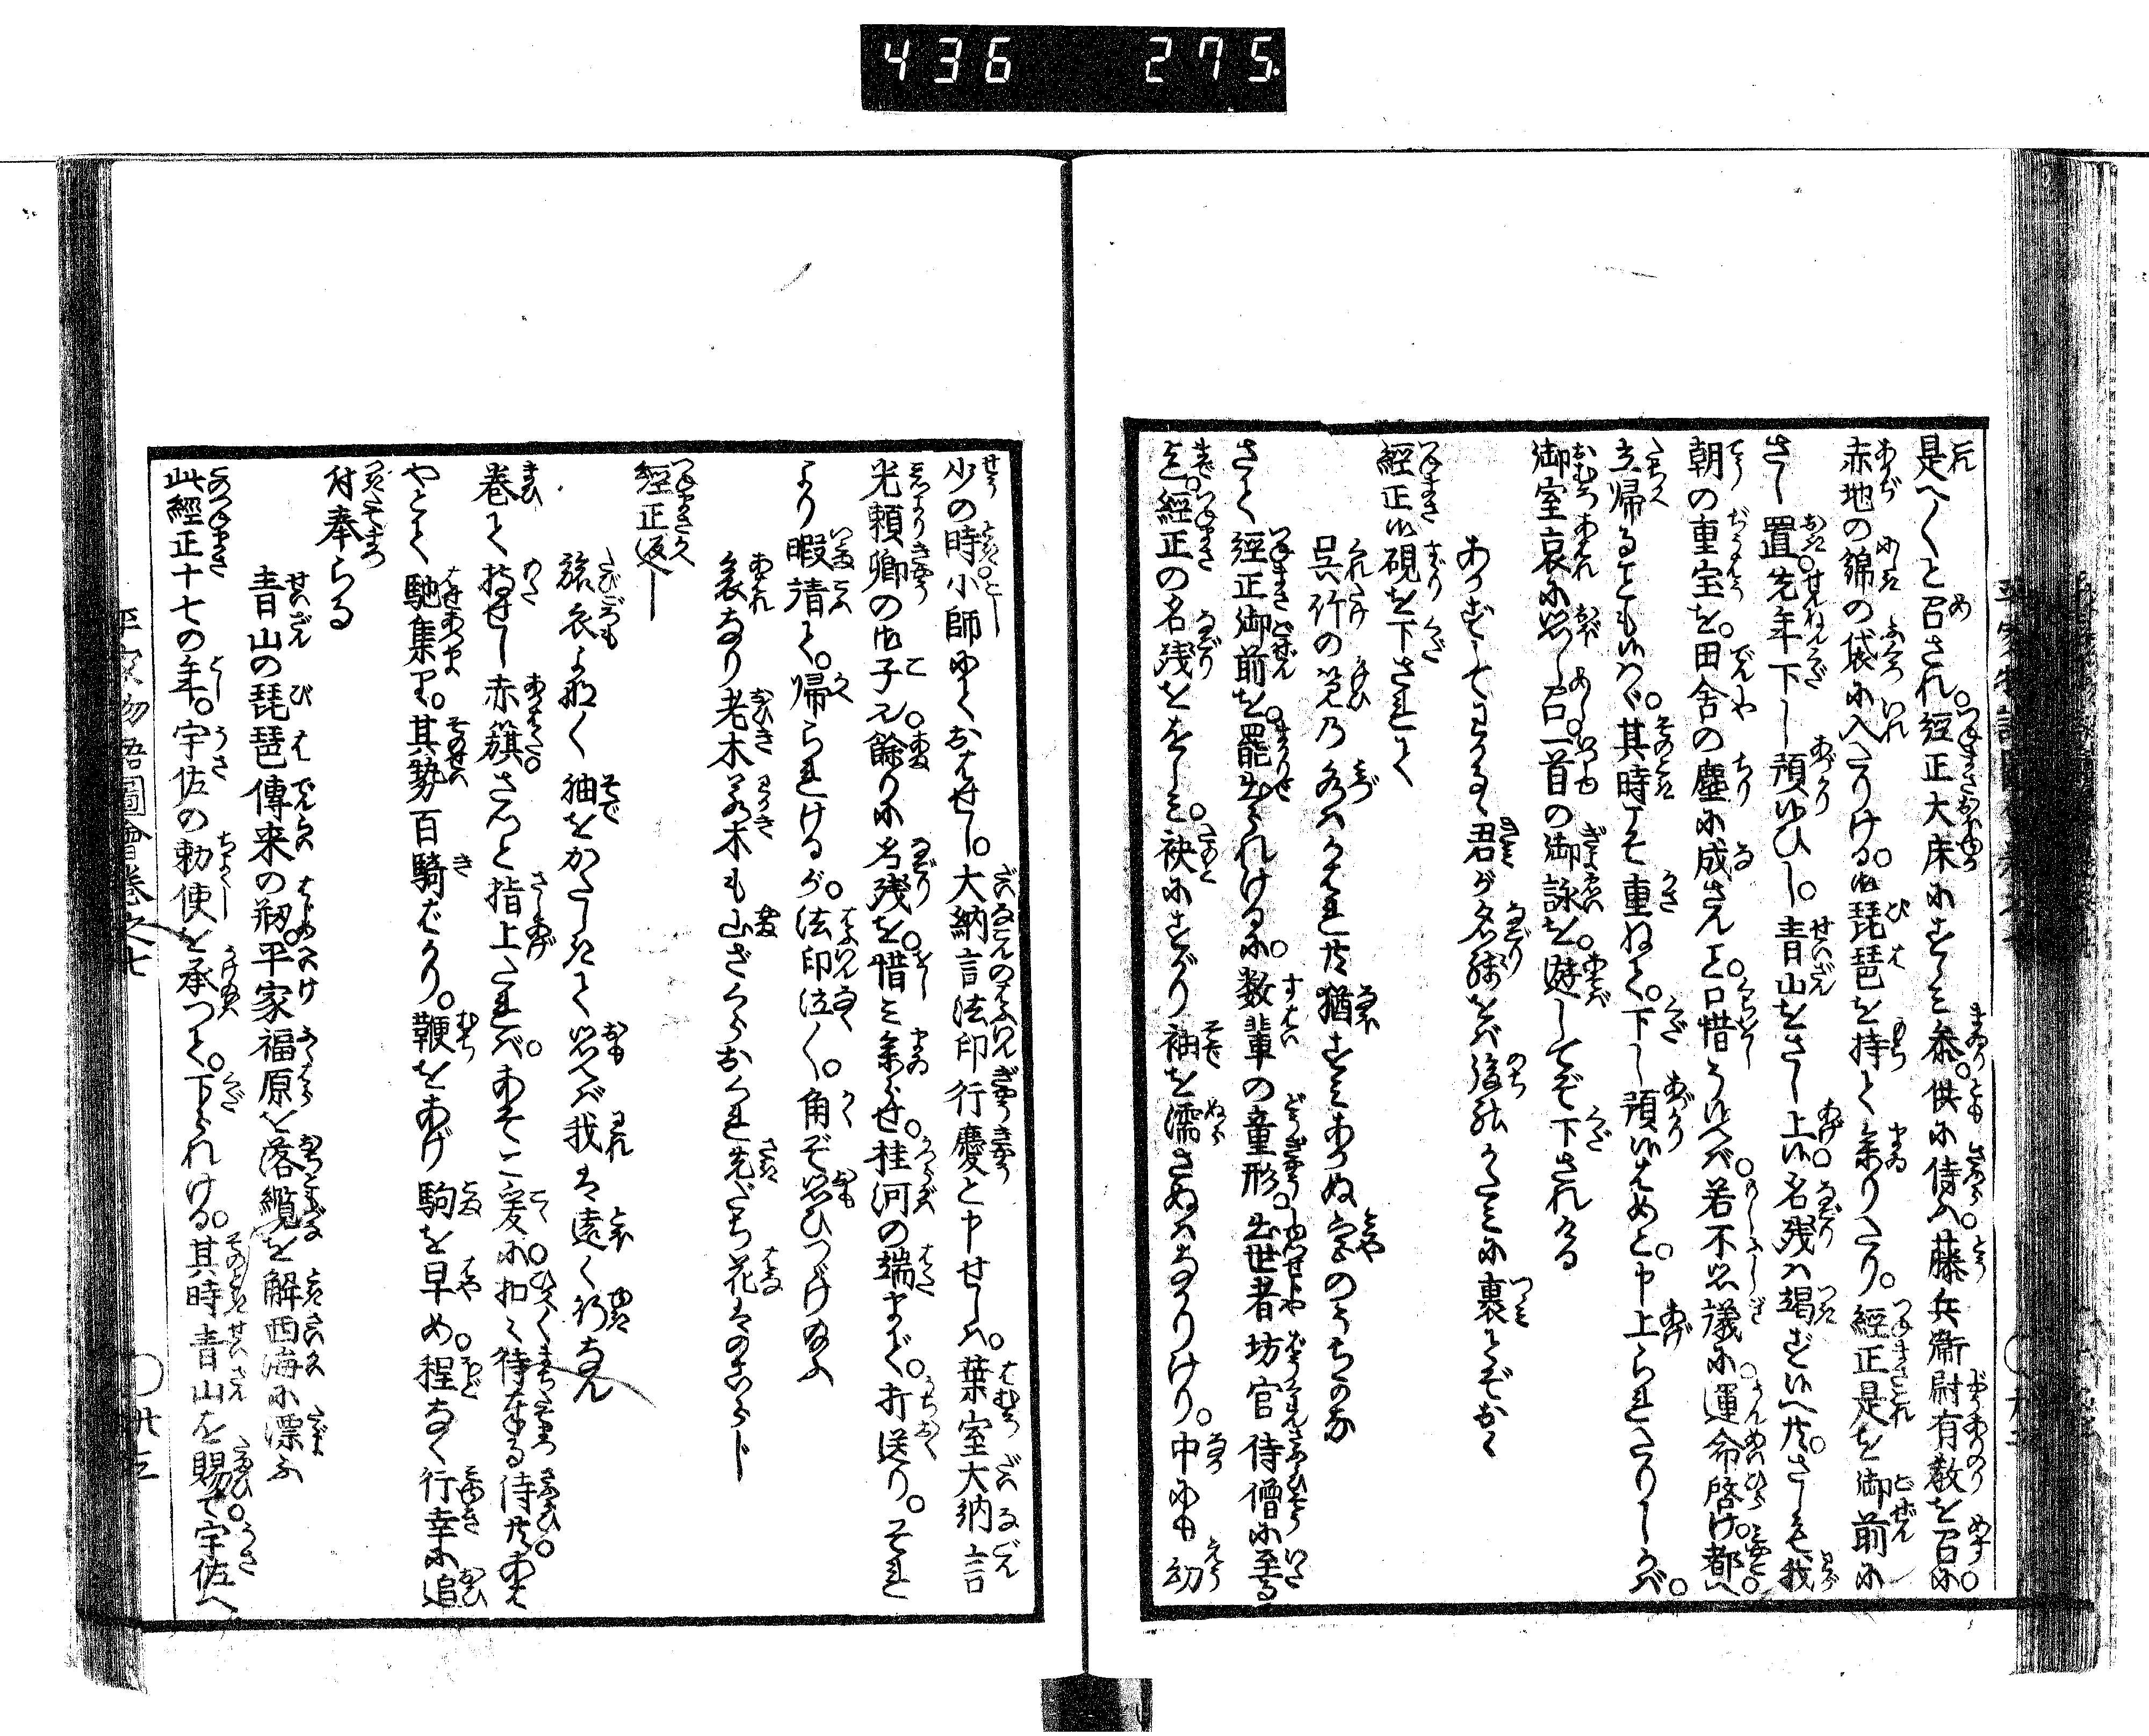 436 275.
是へ〱と召され。經正大床にすゝみ参。供に侍ふ。藤兵衞尉有教を召に。
赤地の錦の袋に入たりける。御琵琶を持て参りたり。經正是を御前に
さし置。先年下し預ひし。青山をさし上い名残は竭ずいへ共。さしも我
朝の重宝を。田舎の塵に成さんと。口惜うひへば。若不思議に運命啓け。都へ
立帰るともいはゞ。其時こそ重ねて。下し預いはめと。申上られたりしかば。
御室哀に思し召一首の御詠を。遊してぞ下されける
あかずしてわかるゝ君が名残をば後形かたみに裹てぞおく
經正御硯を下されて
呉竹の筧乃水はかはれ共猶すみあかぬ宮のうちかな
さて經正御前を。罷出られけるに。数輩の童形。出世者坊官侍僧に至る
迄。經正の名残ををしみ。袂にすがり袖を濡さぬはなかりけり。中にも幼
少の時小師にておはせし。大納言法印行慶と申せしハ。葉室大納言
光頼卿の御子也。餘りに名残を。惜み参らせ。桂河の端まで。打送り。それ
より暇請て。帰られけるが。法印泣〱。角ぞ思ひつゞけ給ふ
哀なり老木若木も山ざくらおくれ先だち花はのこらじ
經正返し
旅衣よな〱袖をかたしきて思へば我は遠く行なん
巻て持せし赤籏さつと指上たれば。あそこ爰に。扣て待奉る侍共。あは
やとて馳集り。其勢百騎ばかり。鞭をあげ駒を早め。程なく行幸に追
付奉らる
青山の琵琶傳来の初。平家福原を落纜を解西海に漂ふ
此經正十七の年。宇佐の勅使を承つて。下られける。其時青山を賜て宇佐へ
平家物語圖會巻之七